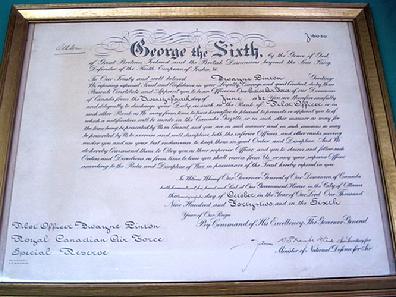 George the Sixth, by the Grace of God
of Great Britain, Ireland and the British Dominions beyond the Seas King,
Defender of the Faith, Emperor of India &c
To Our Trusty and well beloved Dwayne Linton Greeting:
We reposing especial Trust and Confidence in your Loyalty, Courage and good Conduct do by these
Presents Constitute and Appoint you to be an Officer in Our
Canada from the day of June 19 You are therefore carefully
and diligently to discharge your Duty as such in the Rank of Pilot Officer or in
such other Rank as We may from time to time hereafter be pleased to promote or appoint you to of
which a notification will be made in the Canada Gazette, or in such other manner as may for
the time being be prescribed by
orders
under you and use your best endeavours to keep them in good Order and Discipline. And We
do hereby Command them to Obey you as their superior Officer, and you to observe and follow such
Orders and Directions as from time to time you shall receive from Us, or any your superior Officer
according to the Rules and Discipline of War, in pursuance of the Trust hereby reposed in you
In Witness Whereof Our Governor General of Our Dominion of Canada
hath hereunto set his hand and Seal at Our Government House in the City of Ottawa
this day of October in the Year of Our Lord One Thousand
Nine Hundred and Forty-two and in the Sixth
Year of Our Reign
By Command of His Excellency The Governor General
Pilot Officer Dwayne Linton
Royal Canadian Air Force
Special Reserve
Minister of National Defence for Air